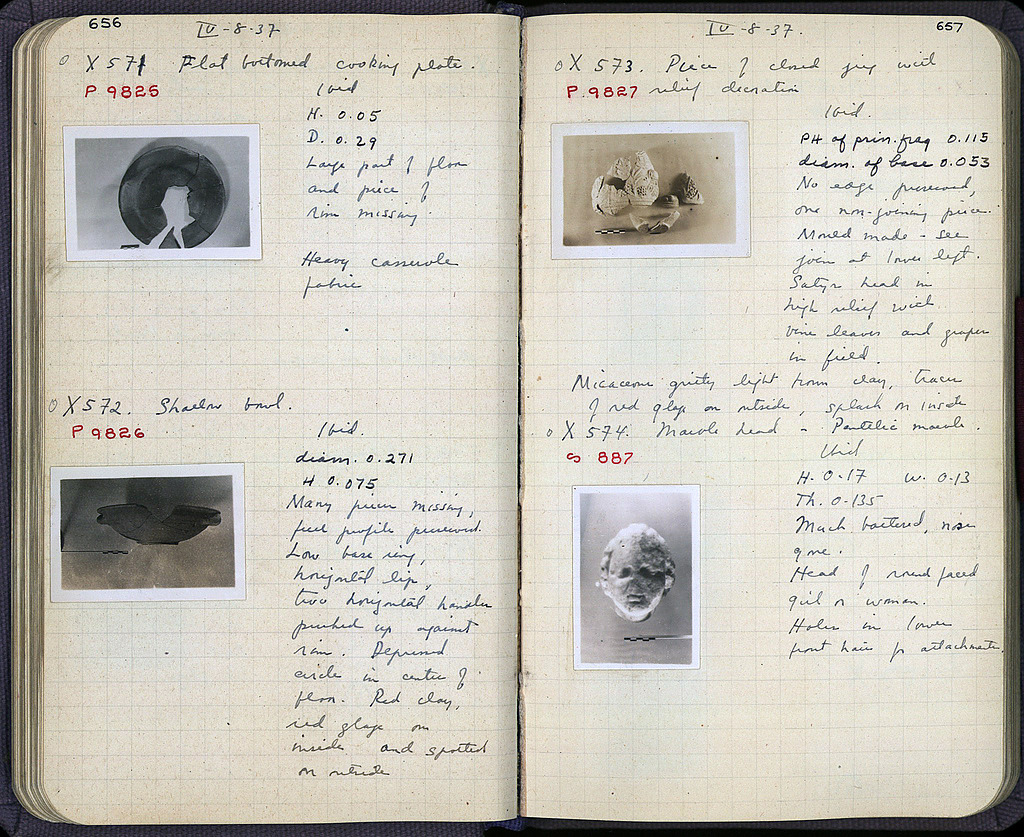 656
IV-8-37
O X 571 Flat bottomed cooking plate.
P 9825
Ibid
H. 0.05
D. 0.29
Large part of floor
and piece of
rim missing.
Heavy casserole
fabric
O X 572. Shallow bowl.
P 9826
Ibid.
diam. 0.271
H 0.075
Many pieces missing,
full profile preserved.
Low base ring,
horizontal lip,
two horizontal handles
pushed up against
rim. Depressed
circle in center of
floor. Red clay,
red glaze on
inside and spotted
on outside
657
IV-8-37.
O X 573. Piece of closed jug with
P. 9827 relief decoration
Ibid.
PH of prin. frag 0.115
diam. of base 0.053
No edge preserved,
one non-joining piece.
Mould made - see
join at lower left.
Satyr head in
high relief with
vine leaves and grapes
in field.
Micaceous gritty light brown clay, traces
of red glaze on outside, splash on inside
O X 574. Marble head - Pentelic marble.
S 887
Ibid
H. 0.17 W. 0.13
Th. 0.135
Much battered, nose
gone.
Head of round faced
girl or woman.
Holes in lower
front hair for attachments.